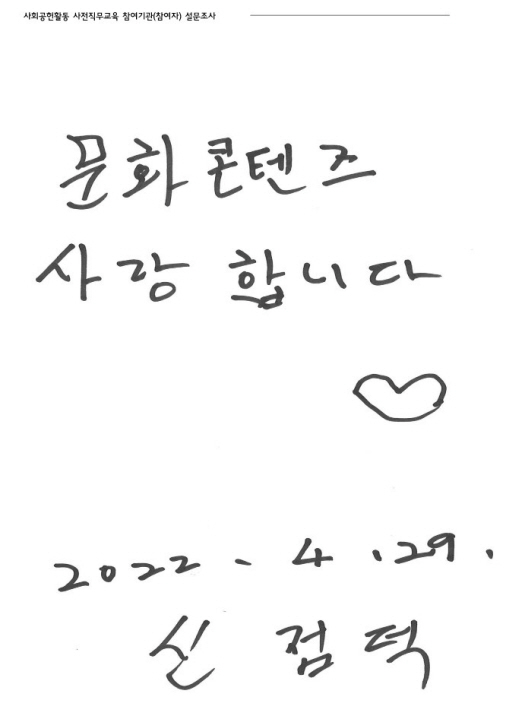 사회공헌활동 사전직무교육 참여기관(참여자) 설문조사
문화콘텐즈
사랑 합니다
2022 - 4 .29.
신 점덕